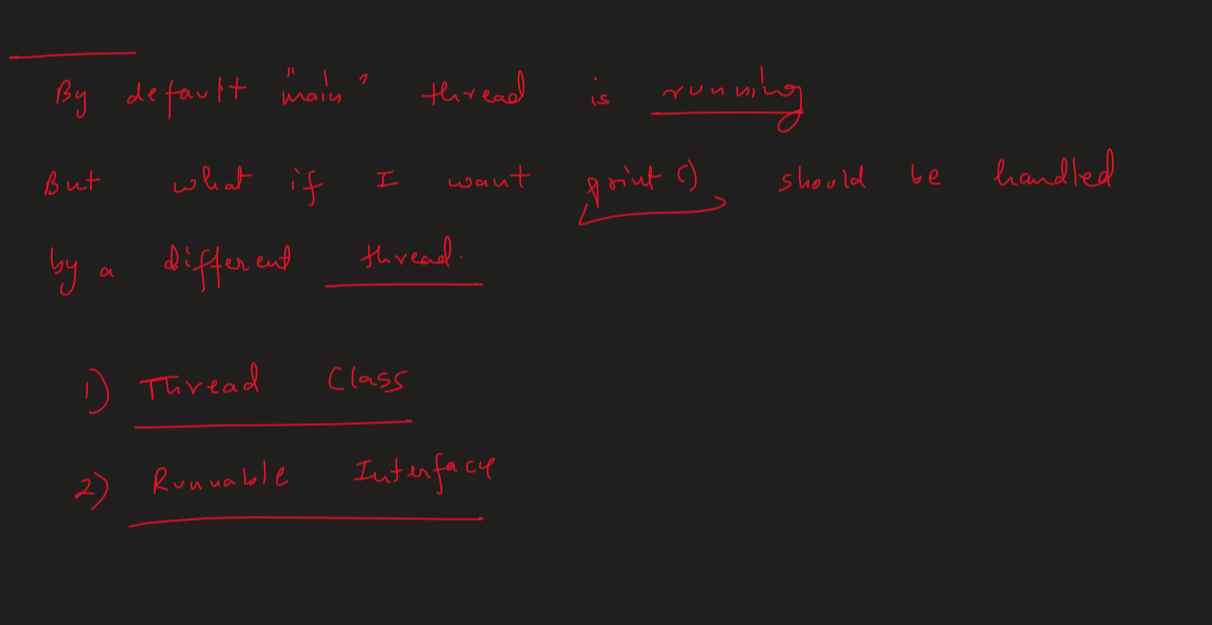 By default "main" thread is running
But what if I want print() should be handled
by a different thread.
1) Thread Class
2) Runnable Interface